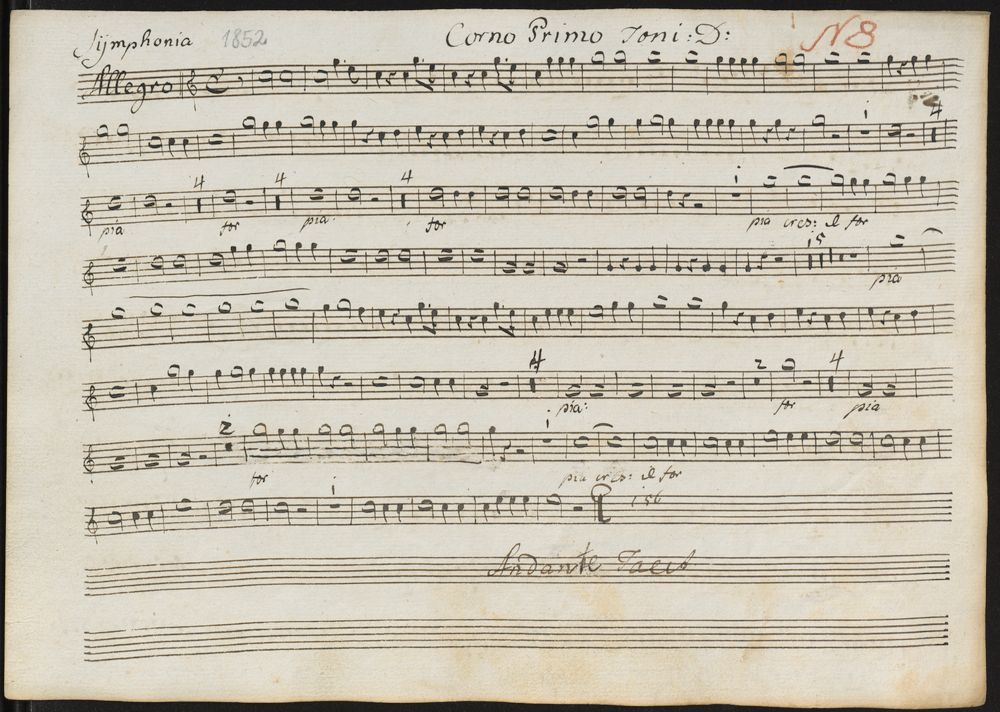 Sijmphonia 1852 Corno Primo Toni: D: N8
Allegro
i 4
4 4 4 i
pia for pia for pia cres: il for
i 5
pia
4 2 4
pia: for pia
2 i
for pia cres: il for
i 156
Andante Tacet